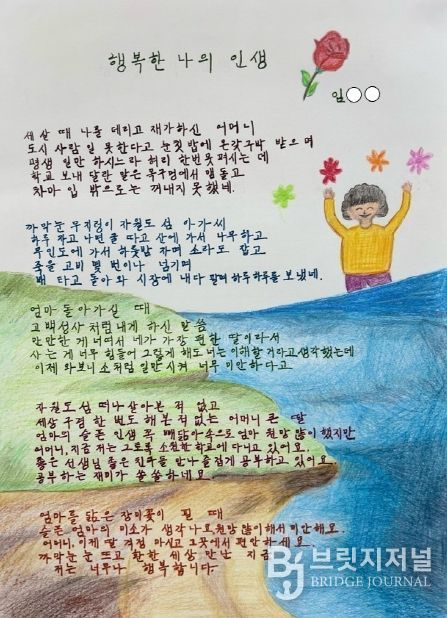 행복한 나의 인생
임○○
세살 때 나를 데리고 재가하신 어머니
도시 사람 일 못한다고 눈칫밥에 온갖 구박 받으며
평생 일만 하시느라 허리 한번 못 펴시는 데
학교 보내 달란 말은 목구멍에서 맴돌고
차마 입 밖으로는 꺼내지 못했네.
까막눈 무지렁이 자월도 섬 아가씨
하루 자고 나면 굴 따고 산에 가서 나무하고
무인도에 가서 하룻밤 자며 소라도 잡고
죽을 고비 몇 번이나 넘기며
배 타고 돌아와 시장에 내다 팔며 하루하루를 보냈네.
엄마 돌아가실 때
고백성사처럼 내게 하신 말씀
만만한 게 너여서 네가 가장 편한 딸이라서
사는 게 너무 힘들어 그렇게 해도 너는 이해할거라고 생각했는데
이제 와보니 소처럼 일만 시켜 너무 미안하다고
자월도 섬 떠나 살아본 적 없고
세상 구경 한 번도 해본 적 없는 어머니 큰 딸
엄마의 슬픈 인생 꼭 빼닮아 속으로 엄마 원망 많이 했지만
어머니, 지금 저는 그토록 소원한 학교에 다니고 있어요.
좋은 선생님 좋은 친구를 만나 즐겁게 공부하고 있어요.
공부하는 재미가 쏠쏠하네요.
엄마를 닮은 장미꽃이 필 때
슬픈 엄마의 미소가 생각나요. 원망 많이해서 미안해요.
어머니, 이제 딸 걱정 마시고 그곳에서 편안하세요.
까막눈 뜨고 환한 세상 만난 지금
저는 너무나 행복합니다.
브릿지저널
BRIDGE JOURNAL